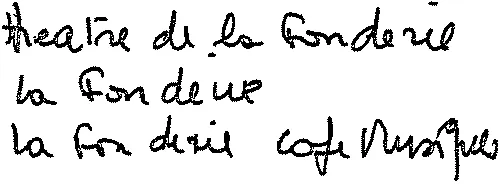 theatre de la Fonderie
la Fonderie
la Fonderie cafe Musiques